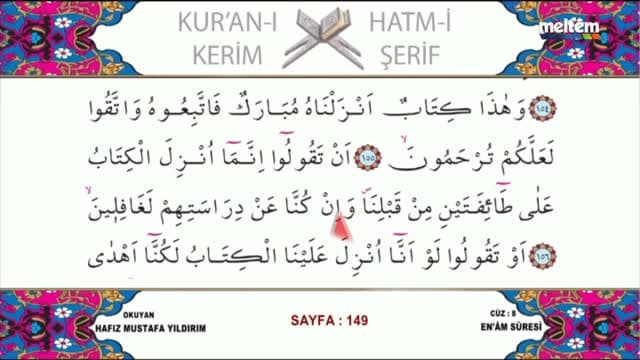 KUR'AN-I KERİM
HATM-İ ŞERİF
meltem
﴿١٥٤﴾ وَهٰذَا كِتَابٌ اَنْزَلْنَاهُ مُبَارَكٌ فَاتَّبِعُوهُ وَاتَّقُوا
لَعَلَّكُمْ تُرْحَمُونَۙ ﴿١٥٥﴾ اَنْ تَقُولُٓوا اِنَّمَٓا اُنْزِلَ الْكِتَابُ
عَلٰى طَٓائِفَتَيْنِ مِنْ قَبْلِنَاۖ وَاِنْ كُنَّا عَنْ دِرَاسَتِهِمْ لَغَافِلِينَۙ
﴿١٥٦﴾ اَوْ تَقُولُوا لَوْ اَنَّٓا اُنْزِلَ عَلَيْنَا الْكِتَابُ لَكُنَّٓا اَهْدٰى
OKUYAN
HAFIZ MUSTAFA YILDIRIM
SAYFA : 149
CÜZ : 8
EN'ÂM SÛRESİ